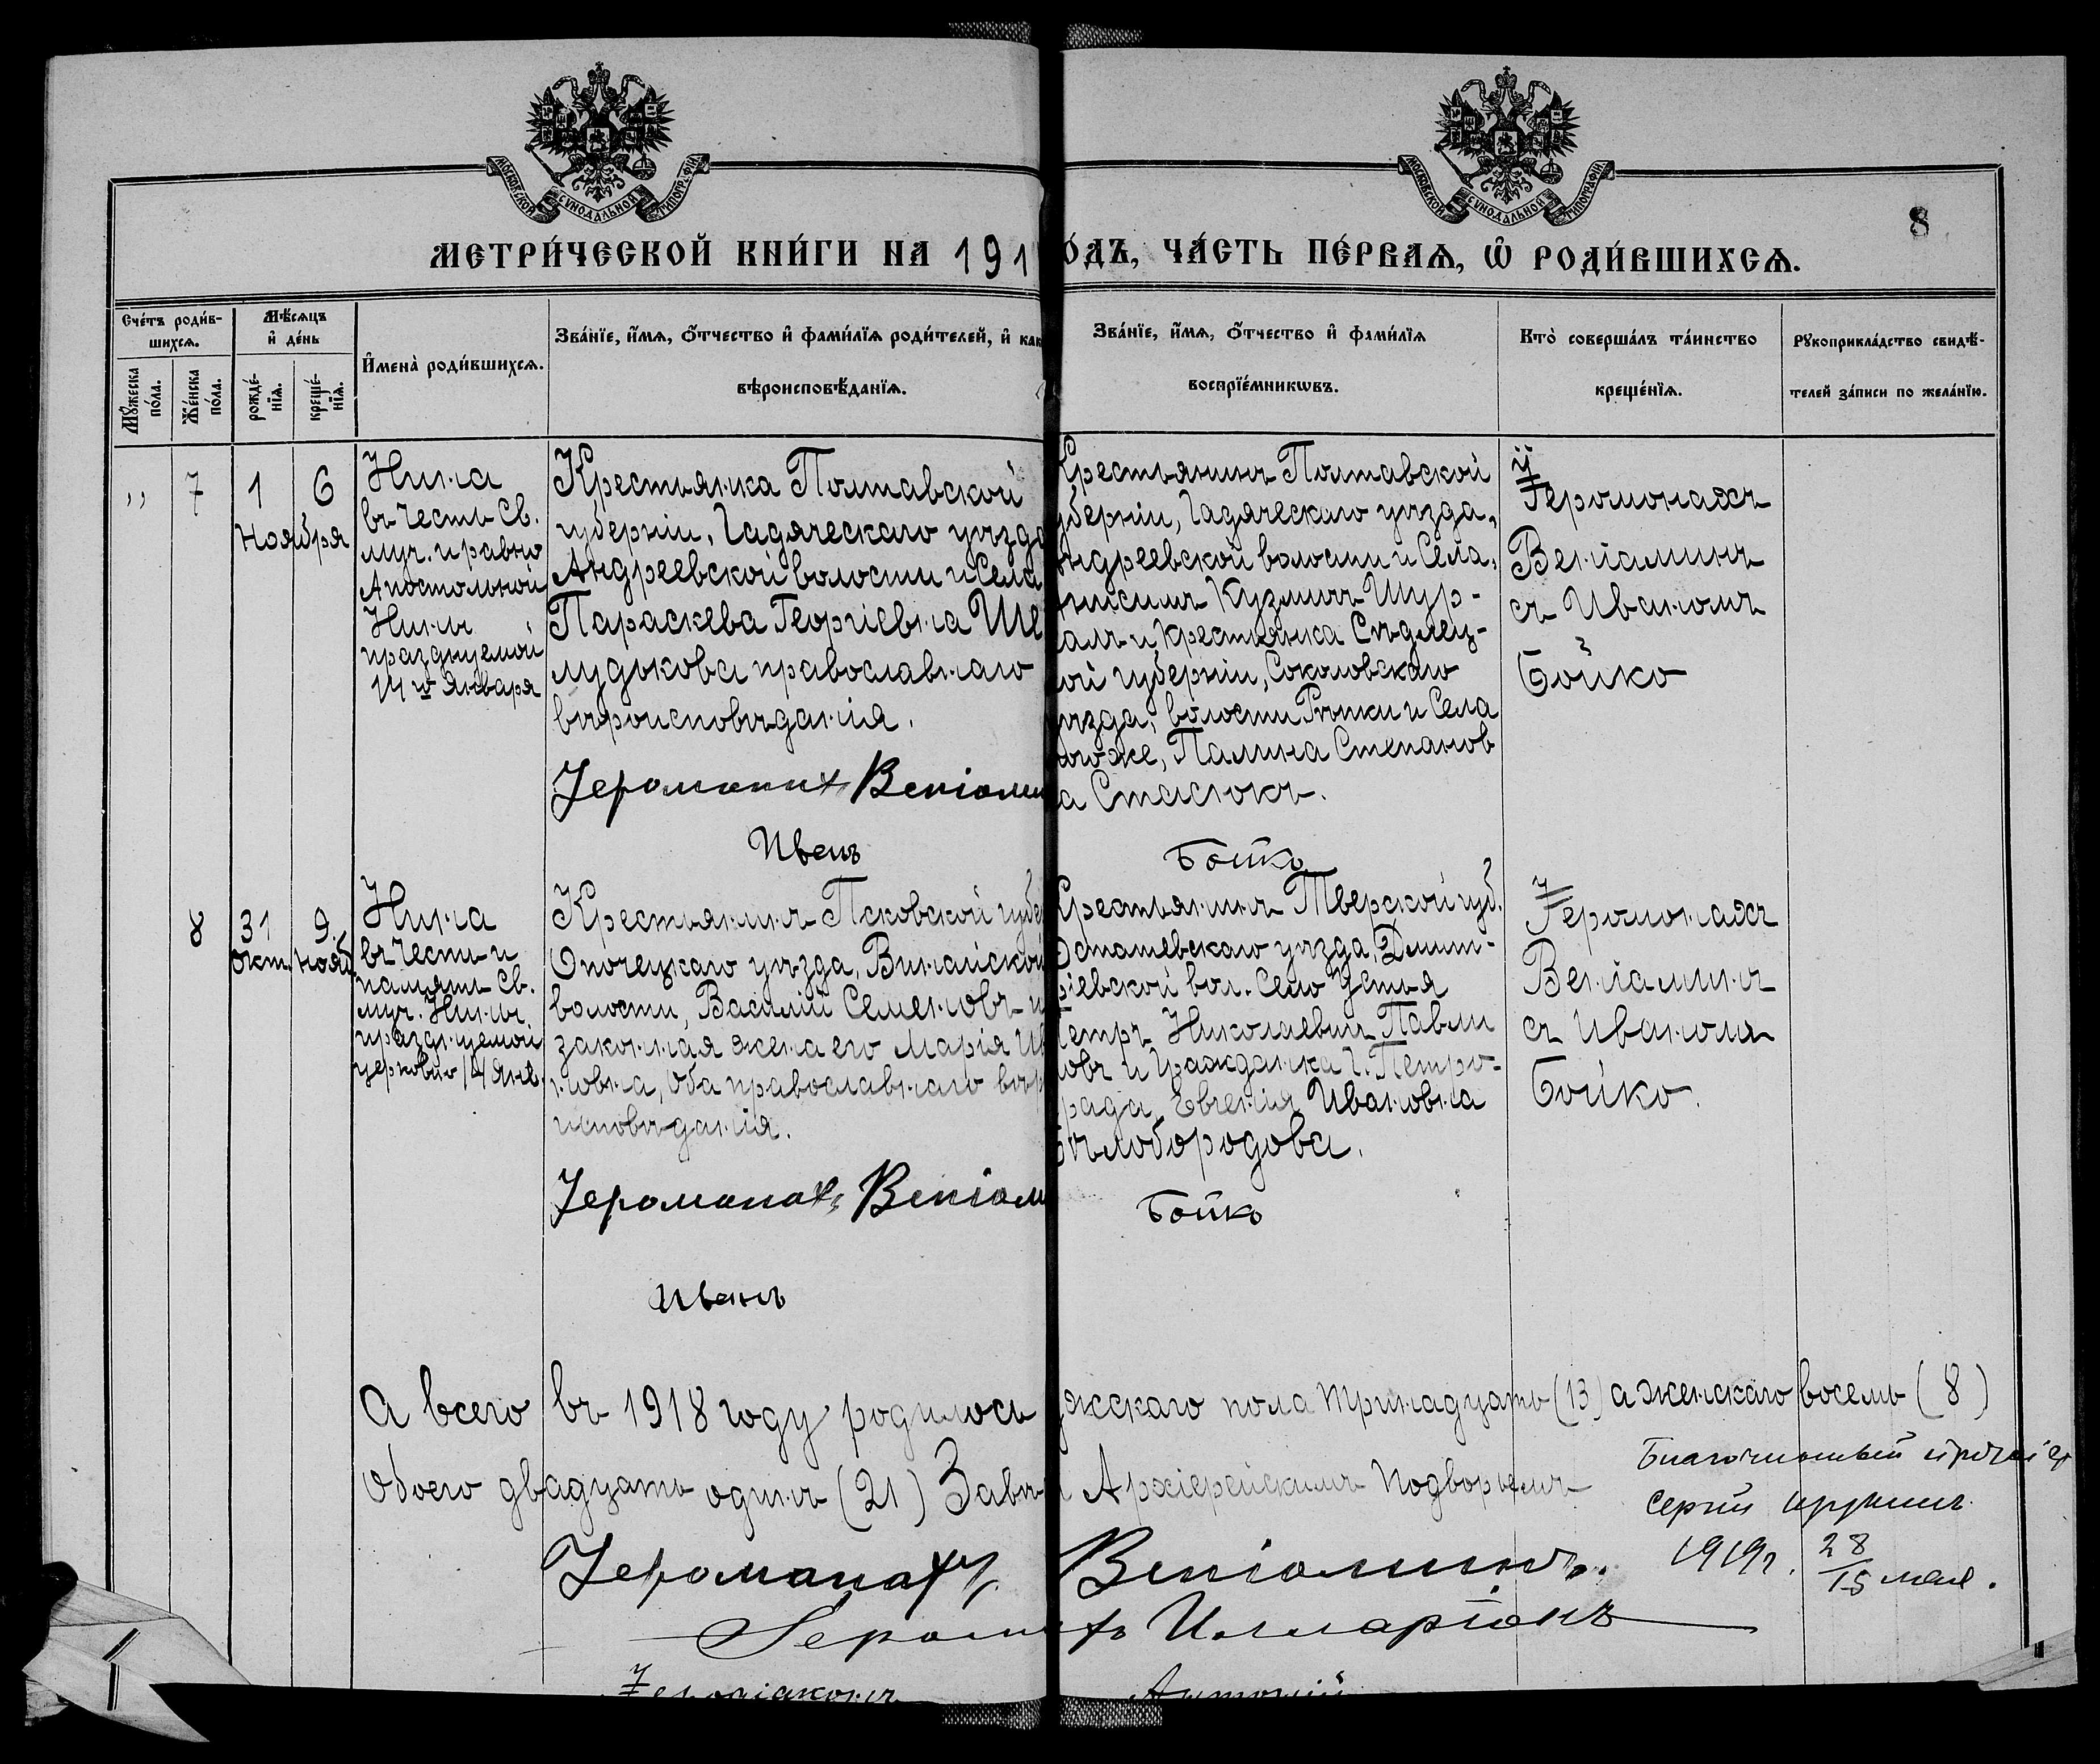 МОСКОВСКОЙ СУНОДАЛЬНОЙ ТИПОГРАФІИ
МОСКОВСКОЙ СУНОДАЛЬНОЙ ТИПОГРАФІИ
8
МЕТРИ́ЧЕСКОЙ КНИ́ГИ НА 191
О́ДЪ, ЧА́СТЬ ПЕ́РВАѦ, Ѡ РОДИ́ВШИХСѦ.
Сче́тъ роди́в-
шихсѧ.
Мꙋ́жеска
по́ла.
Же́нска
по́ла.
Мѣ́сѧцъ
и де́нь
рожде́-
нїѧ.
креще́-
нїѧ.
Имена̀ роди́вшихсѧ.
Зва́нїе, и́мѧ, ѻ́тчество и фами́лїѧ роди́телей, и как
вѣроисповѣ́данїѧ.
Зва́нїе, и́мѧ, ѻ́тчество и фами́лїѧ
воспрїе́мникѡвъ.
Кто̀ соверша́лъ та́инство
креще́нїѧ.
Рꙋкоприкла́дство свидѣ́-
телей за́писи по жела́нїю.
" 7 1 6
Ноября
Нина
въ честь Св.
муч. и равно
Апостольной
Нины
празднуемой
14го Января
Крестьянка Полтавской
губерніи, Гадяческаго уѣзда
Андреевской волости и Села
Параскева Георгіевна Ше
лудькова православнаго
вѣроисповѣданія.
Іеромонахъ Веніами
Иванъ
Крестьянинъ Полтавской
уберніи, Гадяческаго уѣзда,
ндреевской волости и Села,
нисимъ Кузмичъ Шур-
алъ и Крестьянка Сѣдлец-
ой губерніи, Соколовскаго
уѣзда, волости Рѣпки и Села
того же, Палина Степанов
а Стасюкъ.
Бойко
Іеромонахъ
Веніаминъ
съ Иваномъ
Бойко
8 31 9
Окт. Нояб.
Нина
въ честь и
память Св.
муч. Нины,
празднуемой
церковію 14 Янв.
Крестьянинъ Псковской губе
Опочецкаго уѣзда,
волости, Василій Семеновъ и
законная жена его Марія Ив
новна, Оба православнаго вѣр
исповѣданія.
Іеромонахъ Веніам
Иванъ
Крестьянинъ Тверской губ.
Осташевскаго уѣзда, Дмит-
ріевской вол. Село Устья
Петръ Николаевич Павли
овъ и Гражданка г. Петро-
рада, Евгенія Ивановна
Бѣлобородова.
Бойко
Іеромонахъ
Веніаминъ
съ Иваномъ
Бойко.
А всего въ 1918 году родилось
ужскаго пола тринадцать (13) а женскаго восемь (8)
Обоего двадцать одинъ (21) Завѣ
Архіерейскимъ Подворьемъ
Іеромонахъ Веніаминъ.
Благочинный протоіер
Сергій
1919г. 28/15 мая.
Іеромонахъ Илларіонъ
Іеродіаконъ Антоній